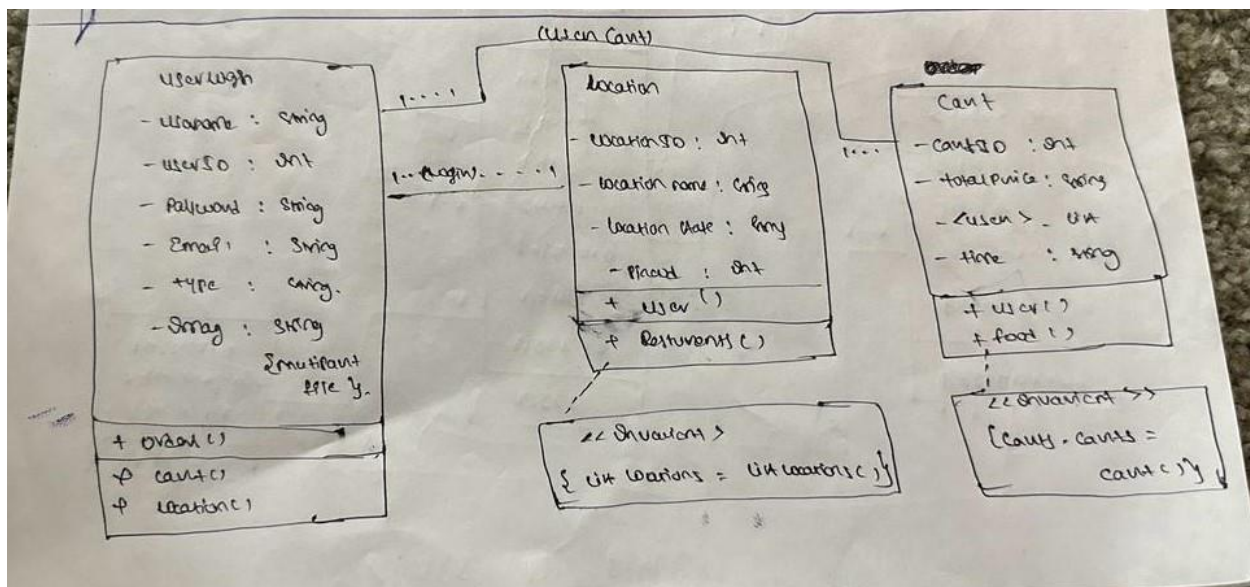 (User Cart)
userlogin
- username : String
- userID : Int
- Password : String
- Email : String
- type : String.
- Imag : String
{mutipart
file}.
+ order()
+ cart()
+ location()
1....1
1..(login).....1
Location
- locationID : Int
- location name : String
- location state :
- Pincod : Int
+ user ()
+ Resturents()
<< Invarient >
{ List locations = List locations()}
1....
Cart
- cartID : Int
- total Price : String
- <user> - List
- time : String
+ user()
+ food ()
<< Invarient >>
{carts.carts =
cart()}